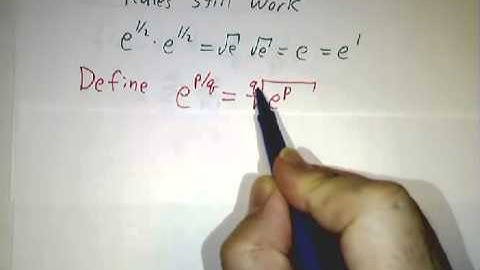 Rules Still Work
e^{1/2} · e^{1/2} = √e √e = e = e^1
Define e^{p/q} = ^q√e^p